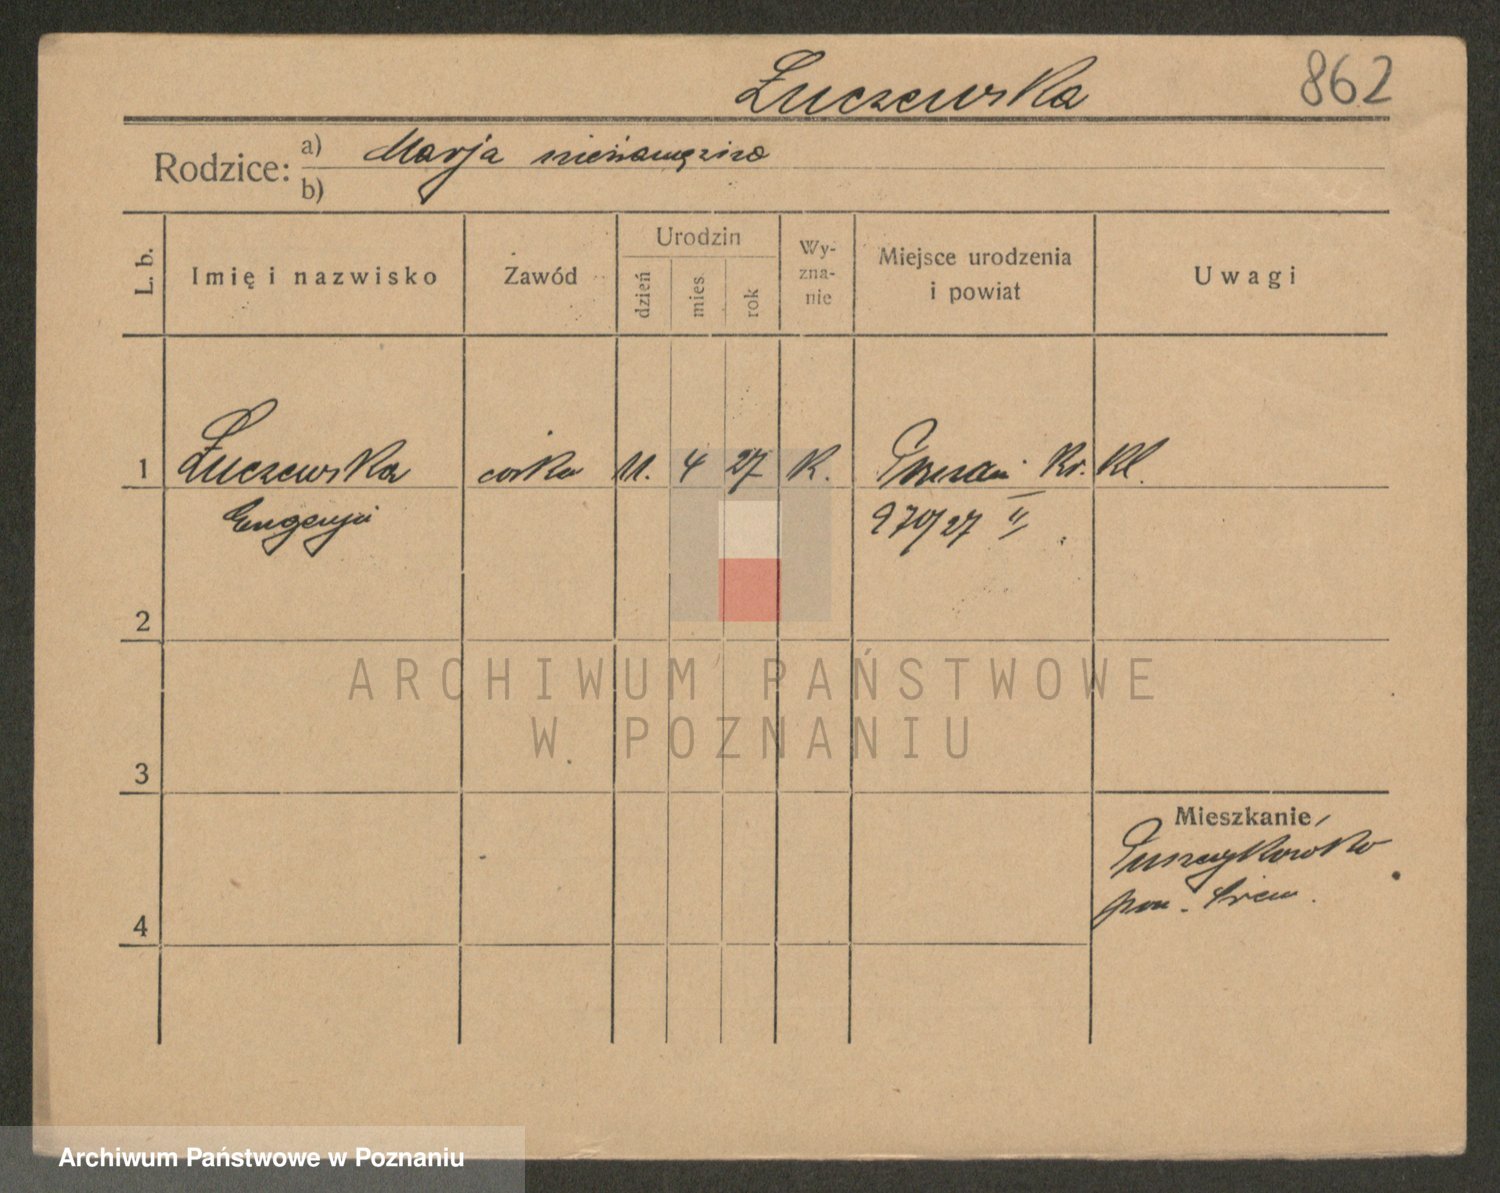 Łuczewska 862
Rodzice: a) Marja niezamężna
b)
L. b. Imię i nazwisko Zawód Urodzin dzień mies. rok Wy-zna-nie Miejsce urodzenia i powiat Uwagi
1 Łuczewska córka 11. 4 27 K. Poznań Kr. Kl.
Eugenja 970/27 II
2
ARCHIWUM PAŃSTWOWE
W POZNANIU
3
Mieszkanie
Puszczykowko
4 pow. Śrem.
Archiwum Państwowe w Poznaniu